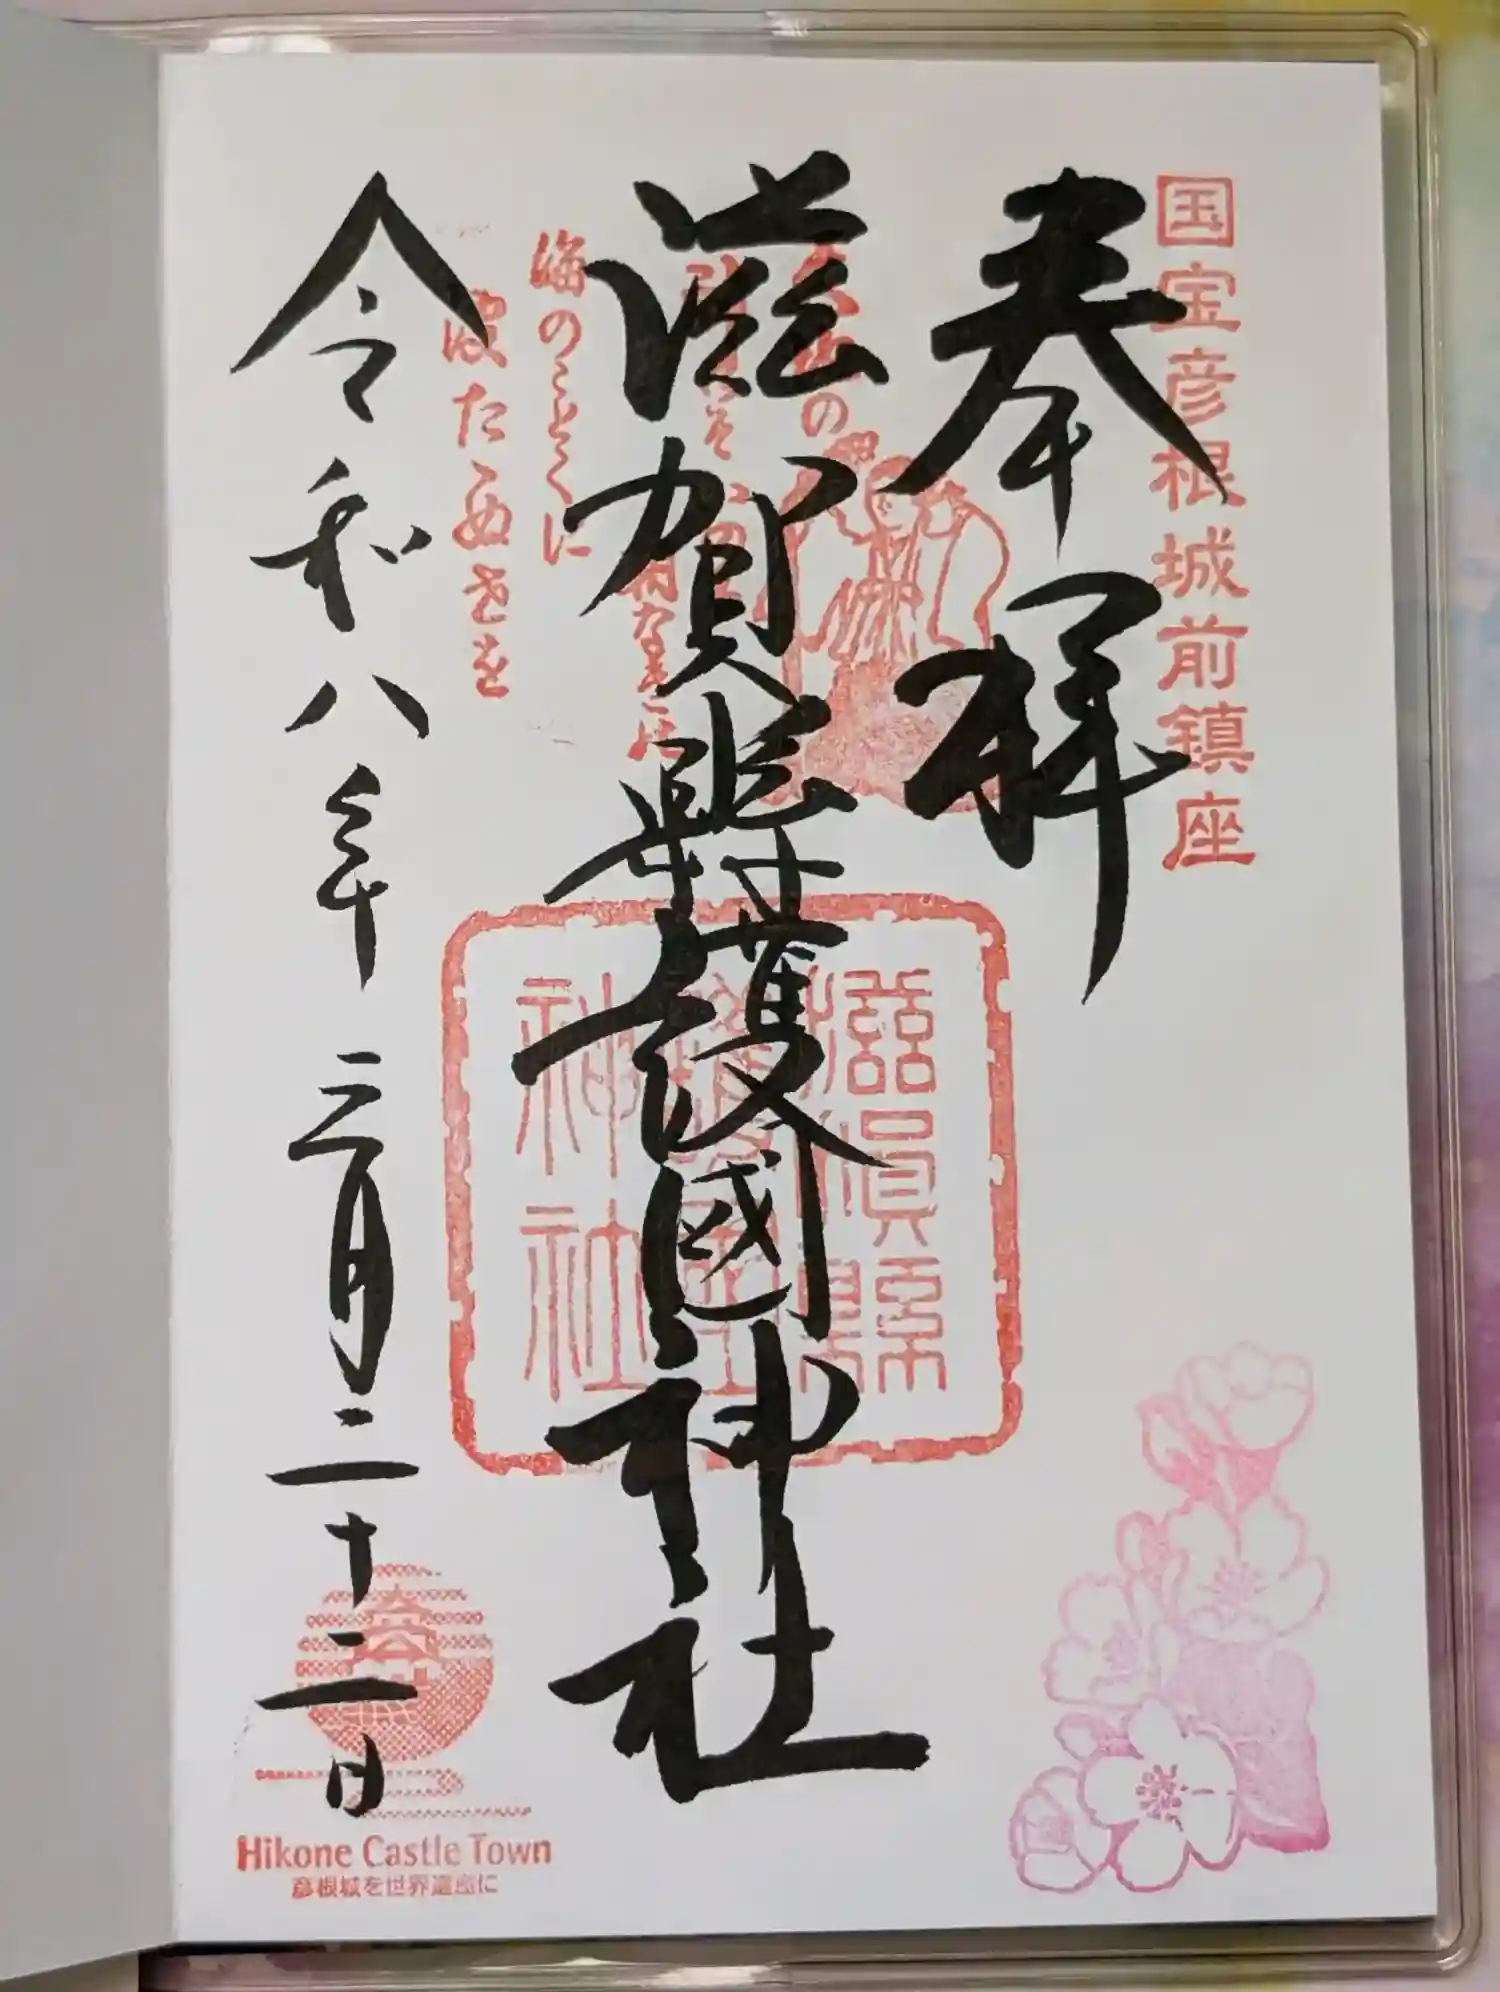 国宝彦根城前鎮座
奉拝
滋賀縣護國神社
滋賀縣
護國
神社
海のことくに
波たゝぬ世を
令和八年三月二十二日
Hikone Castle Town
彦根城を世界遺産に